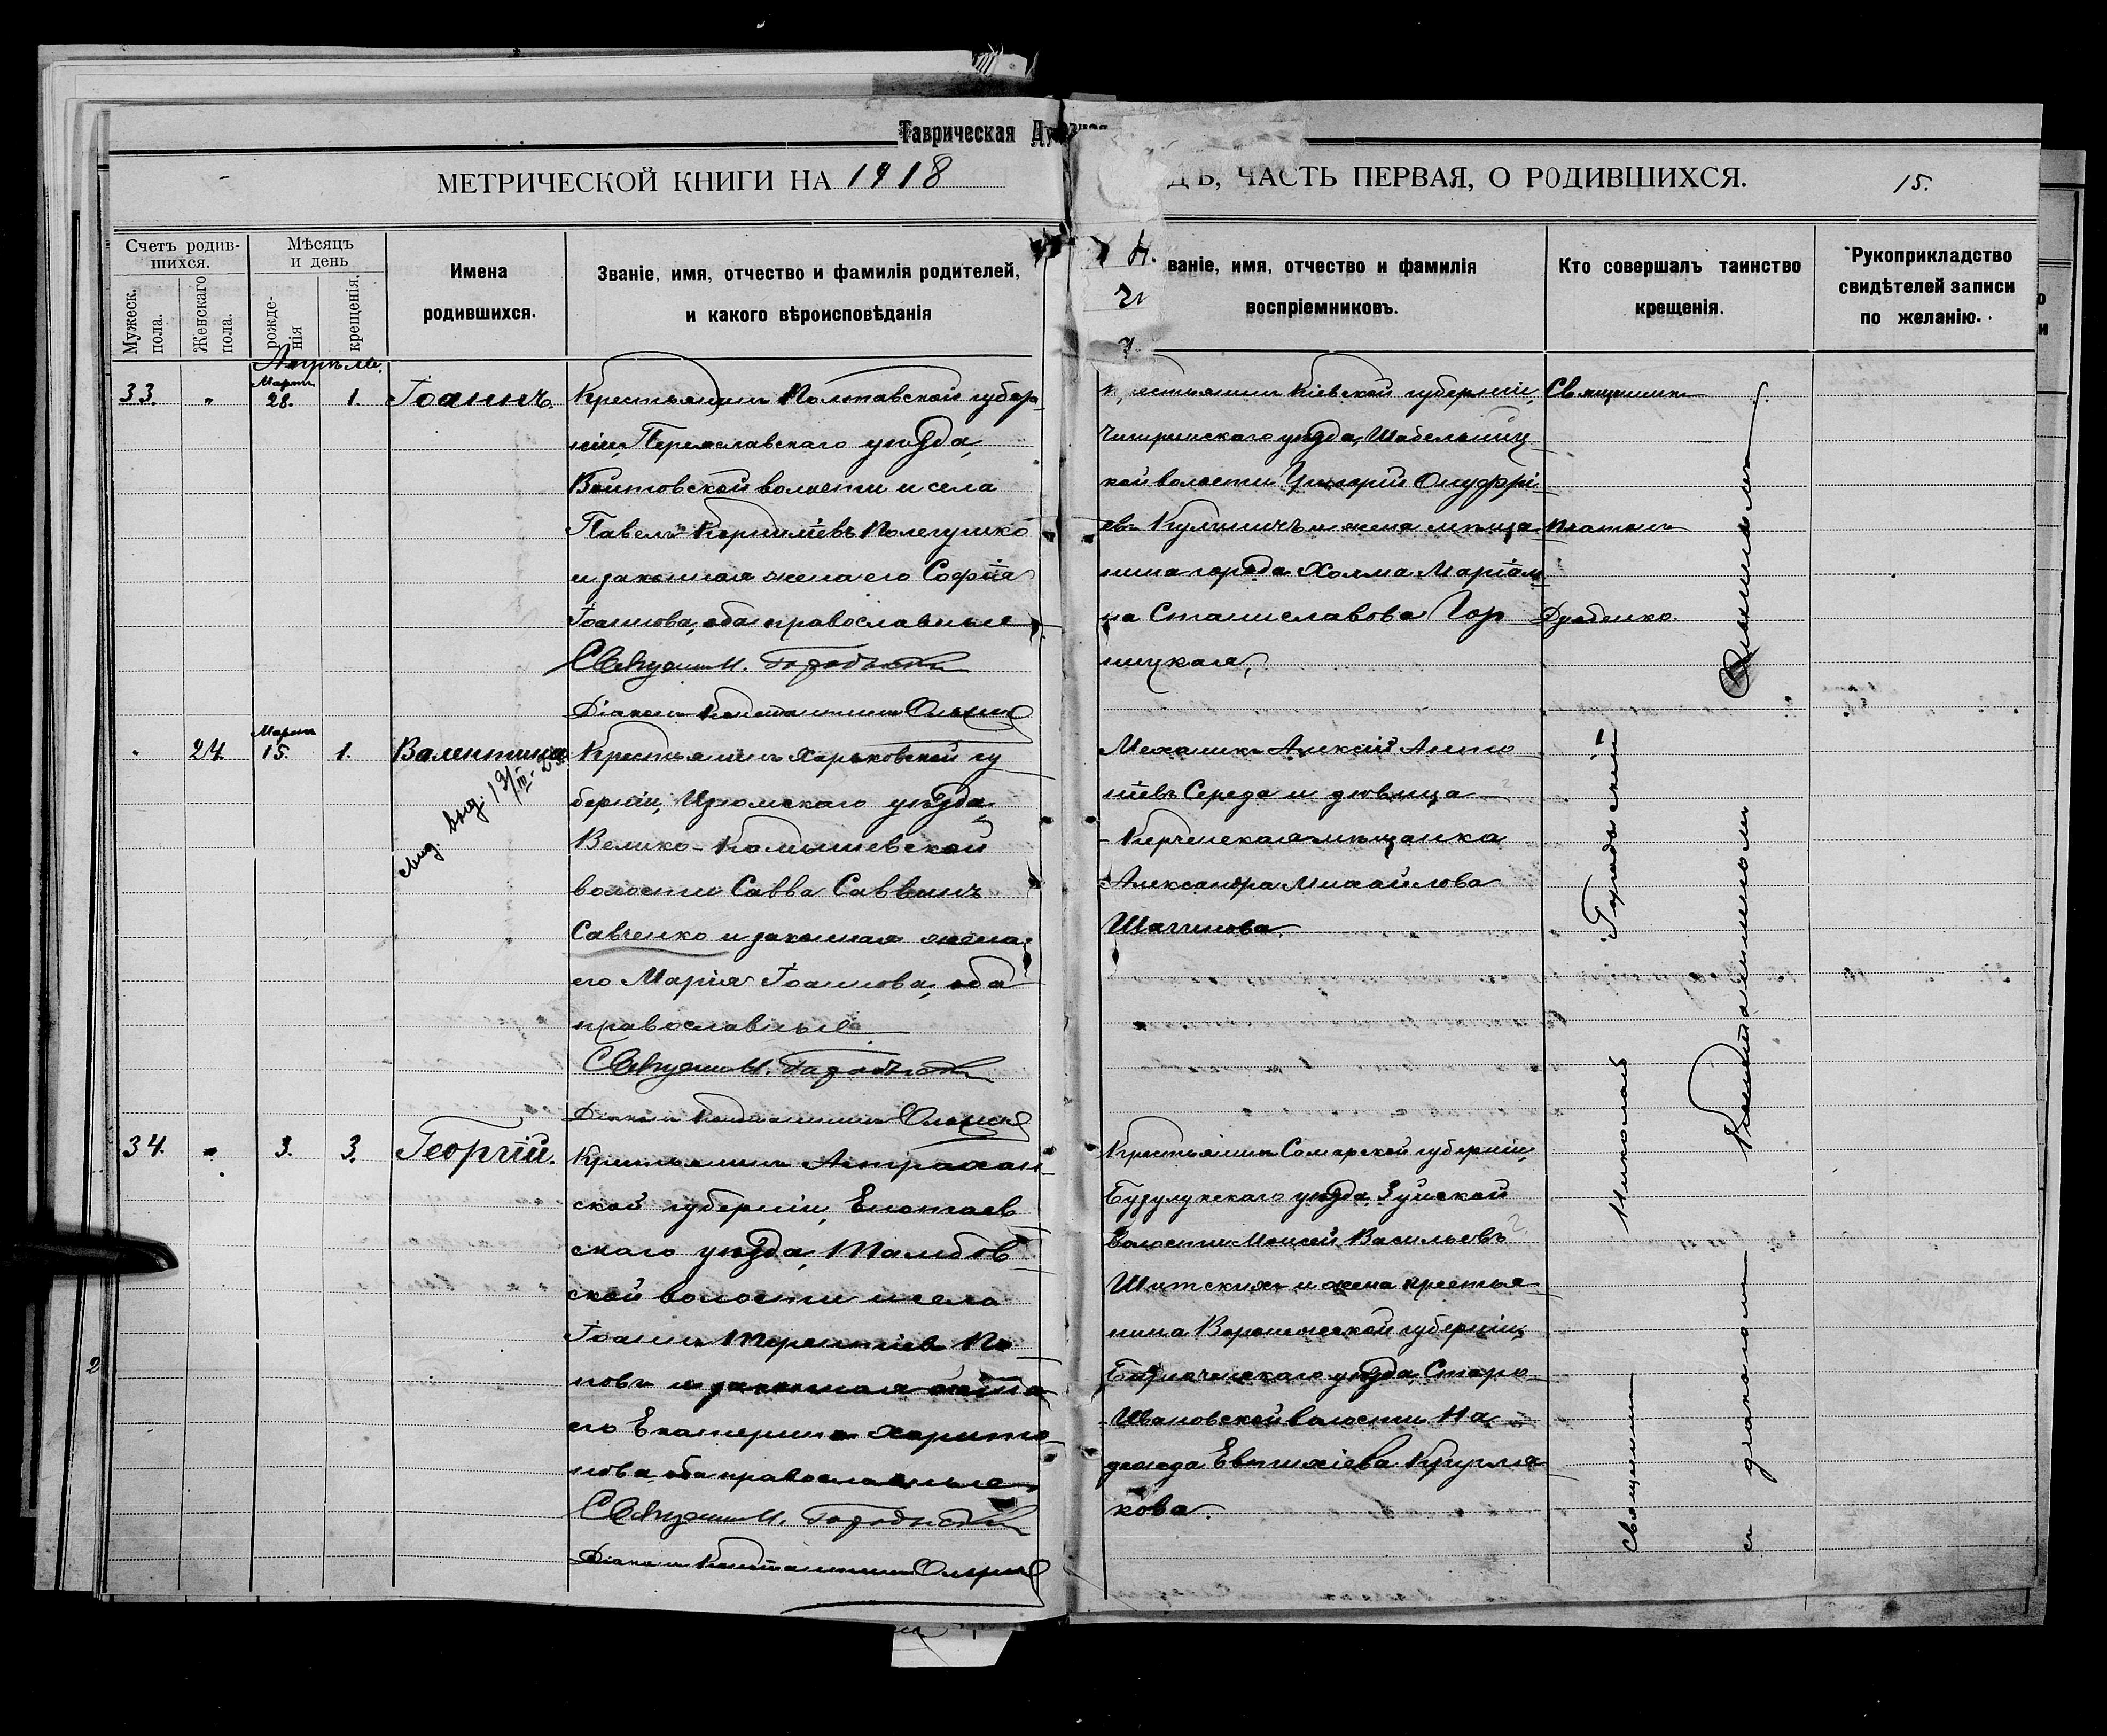 Таврическая Ду
МЕТРИЧЕСКОЙ КНИГИ НА 1918
ДЪ, ЧАСТЬ ПЕРВАЯ, О РОДИВШИХСЯ.
15.
Счетъ родив-
шихся.
Мужеск. пола.
Женскаго пола.
Мѣсяцъ
и день
рожде-
нія
крещенія.
Имена
родившихся.
Званіе, имя, отчество и фамилія родителей,
и какого вѣроисповѣданія
ваніе, имя, отчество и фамилія
воспріемниковъ.
Кто совершалъ таинство
крещенія.
Рукоприкладство
свидѣтелей записи
по желанію.
Апрѣль.
33. " Мартъ 28. 1. Іоаннъ.
Крестьянинъ Полтавской губер-
ніи, Переяславскаго уѣзда,
Войтовской волости и села
Павелъ Корниліевъ Полегушко
и законная жена его Софія
Іоаннова, оба православные
Священ. Н. Городискій
Діаконъ Константинъ
стьянинъ Кіевской губерніи,
Чигиринскаго уѣзда, Шабельниц-
кой волости Григорій Онуфрі-
евъ Кулиничъ и жена мѣща-
нина города Холма Маріам-
на Станиславова Гор
ницкая.
Священникъ
Платонъ
Дубенко.
" 24. Мартъ 15. 1. Валентина
выд. 19/III. 25.
Крестьянинъ Харьковской гу
берніи, Изюмскаго уѣзда,
Велико-Камышевской
волости Савва Саввинъ
Савченко и законная жена
его Марія Іоаннова, оба
православные
Священ. Н. Городискій
Діаконъ Константинъ
Механикъ Алексій Анто
ніевъ Середа и дѣвица
Керченская мѣщанка
Александра Михайлова
Шагинова.
34. " 3. 3. Георгій.
Крестьянинъ Астрахан-
ской губерніи, Енотаев
скаго уѣзда, Тамбов-
ской волости и села
Іоаннъ Терентіевъ По-
повъ и законная жена
его Екатерина Харито-
нова, оба православные.
Священ. Н. Городискій
Діаконъ Константинъ
Крестьянинъ Самарской губерніи,
Бузулукскаго уѣзда,
волости Моисей Васильевъ
и жена крестья-
нина Воронежской губерніи,
Бирюченскаго уѣзда, Старо-
Ивановской волости На-
дежда Евтихіева Кругля-
кова.
Священникъ Николай Городискій
съ діакономъ Константиномъ